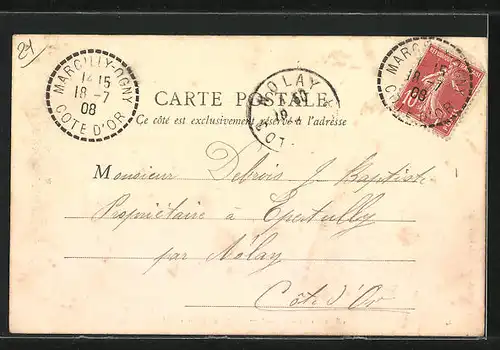 21
MARCILLY-OGNY
14 15
18-7
08
COTE D'OR
NOLAY
MARC
15
18-7
08
COTE D'OR
10
CARTE POSTALE
Ce côté est exclusivement réservé à l'adresse
Monsieur Debrois J. Baptiste
Propriétaire à Epertully
par Nolay
Côte d'Or